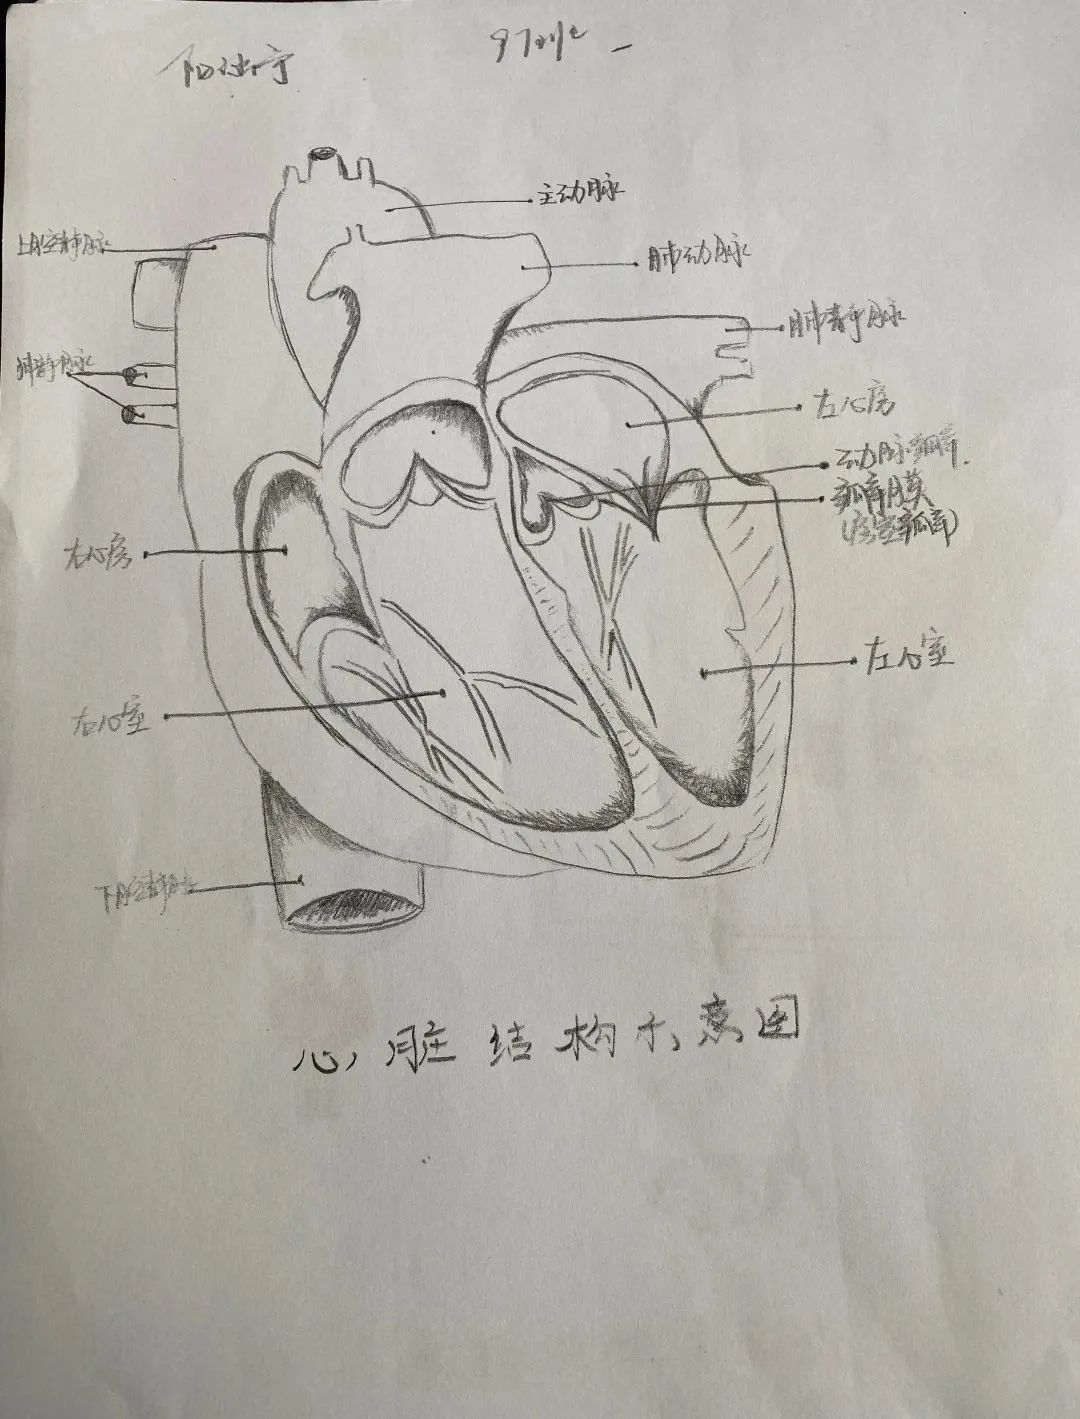 主动脉
上腔静脉
肺动脉
肺静脉
肺静脉
左心房
动脉瓣
瓣膜
(房室瓣)
右心房
左心室
右心室
下腔静脉
心脏结构示意图